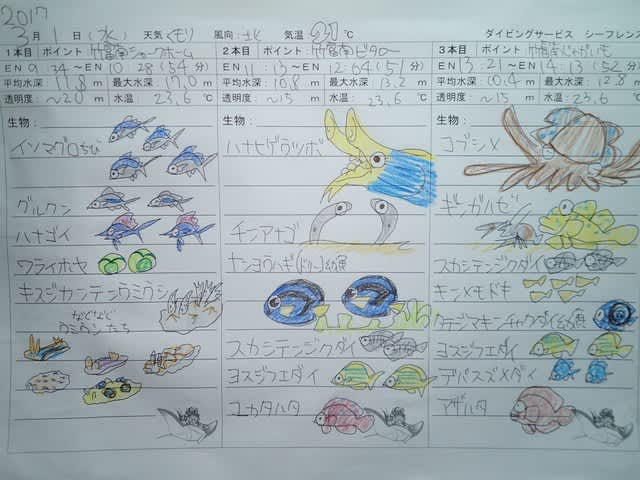 2017
3月 1日（水） 天気 くもり 風向：北 気温 21℃ ダイビングサービス シーフレンズ
1本目 ポイント：竹富南シャークホーム
EN 9:34～EN 10:28（54分）
平均水深：11.8m 最大水深：17.0m
透明度：～20m 水温：23,6℃
生物：
イソマグロちび
グルクン
ハナゴイ
ワライボヤ
キスジカンテンウミウシ
などなど
ウミウシたち
2本目 ポイント：竹富南ビタロー
EN 11:13～EN 12:04（51分）
平均水深：10.8m 最大水深：13.2m
透明度：～15m 水温：23,6℃
生物：
ハナヒゲウツボ
チンアナゴ
ナンヨウハギ（ドリー）幼魚
スカシテンジクダイ
ヨスジフエダイ
ユカタハタ
3本目 ポイント：竹富南じゃがいも
EN 13:21～EN 14:13（52分）
平均水深：10.4m 最大水深：12.8m
透明度：～15m 水温：23.6℃
生物：
コブシメ
ギンガハゼ
スカシテンジクダイ
キンメモドキ
タテジマキンチャクダイ幼魚
ヨスジフエダイ
デバスズメダイ
アザハタ